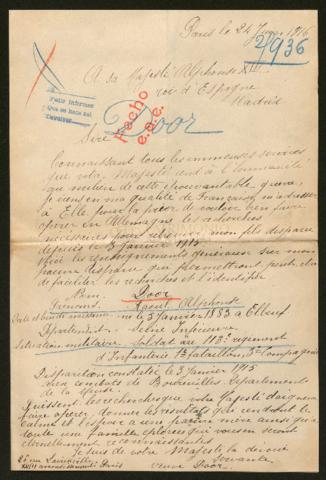 Paris le 24 Janv 1916
2/936
A sa Majesté Alphonse XIII
roi d'Espagne
Madrid
Door
Hecho
e.e.e.
Sire
Connaissant tous les immenses services
que votre Majesté rend à l'humanité
au milieu de cette épouvantable guerre,
je viens en ma qualité de française m'adresser
à Elle pour la prier de vouloir bien faire
opérer en Allemagne les recherches
nécessaires pour retrouver mon fils disparu
depuis le 3 Janvier 1915
Voici les renseignements généraux sur mon
pauvre disparu que permettront peut-être
de faciliter les recherches et l'identifier
Nom Door
Prénoms Raoul Alphonse
né le 3 Janvier 1883 à Elbeuf
Département Seine Inférieure
Situation militaire. Soldat au 113e régiment
d'Infanterie 1er bataillon 3e Compagnie
Disparition constatée le 3 Janvier 1915
aux combats de Boureuilles Département
de la Meuse
Puissent les recherches que votre Majesté daignera
faire opérer, donner le résultat que rendront le
calme et l'espoir à une pauvre mère ainsi qu'à
toute une famille éplorée qui vous en seront
éternellement reconnaissantes
Je suis de votre Majesté la dévouée
servante
veuve Door
Paris